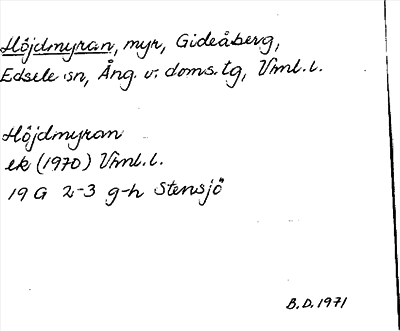 Höjdmyran, myr, Gideåberg,
Edsele sn, Ång. v. doms. tg, Vrnl. l.
Höjdmyran
ek (1970) Vrnl. l.
19 G 2-3 g-h Stensjö
B.D. 1971